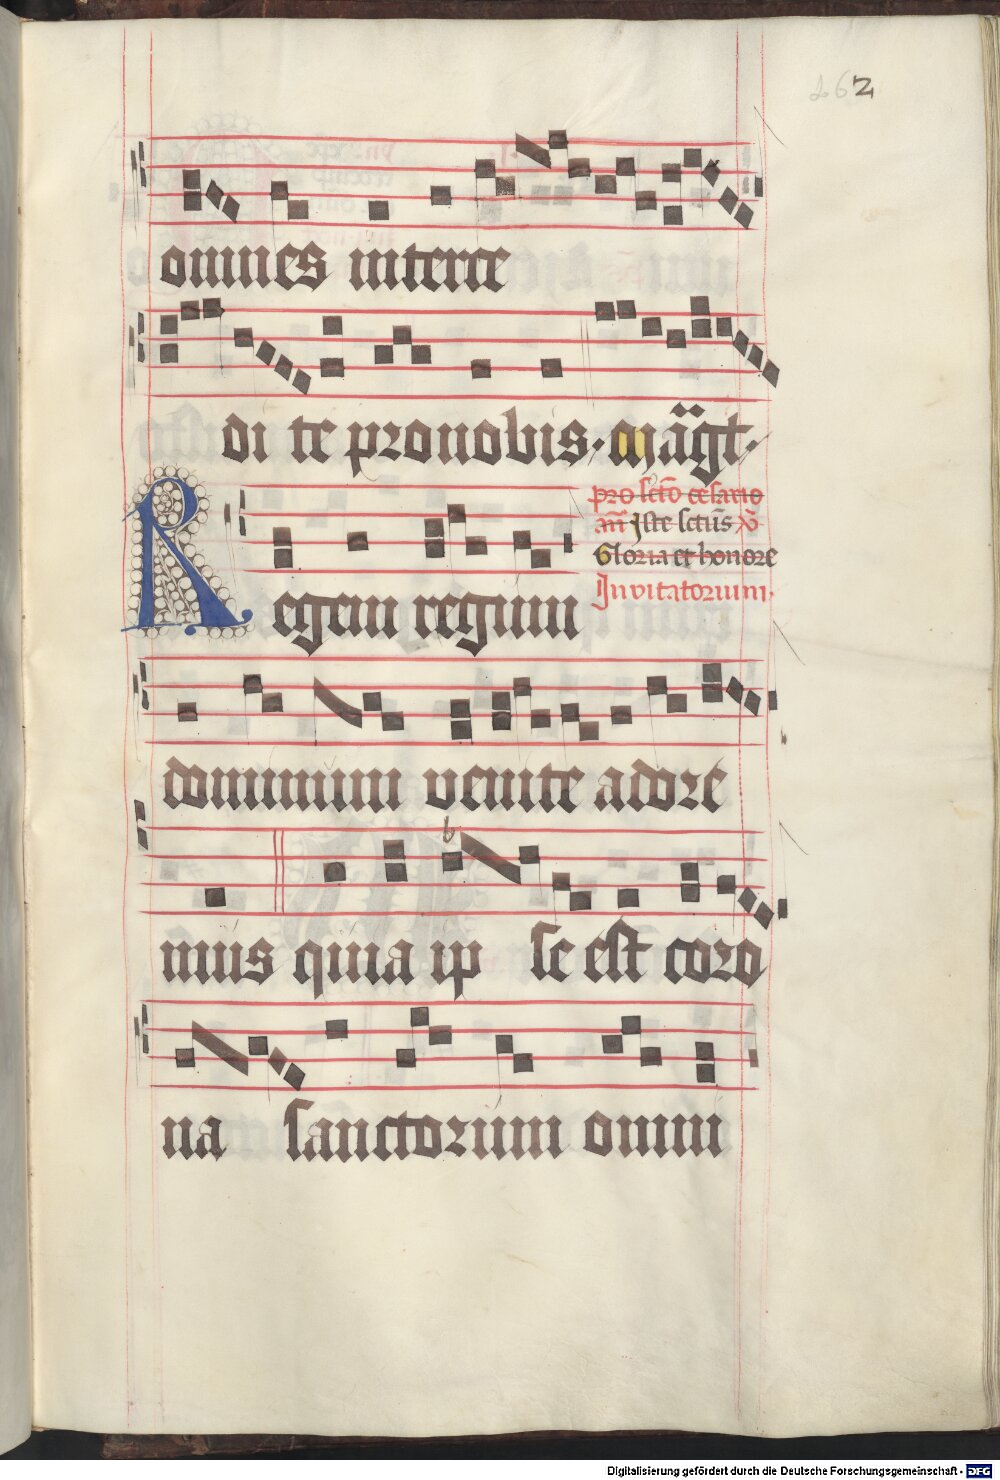 262
omnes interce
di te pro nobis. Mag̈t.
pro scto cesario
an̄ Iste sctūs v̄
Gloria et honore
Invitatorium.
Regem regum
dominum venite adore
mus quia ip se est coro
na sanctorum omni
Digitalisierung gefördert durch die Deutsche Forschungsgemeinschaft - DFG